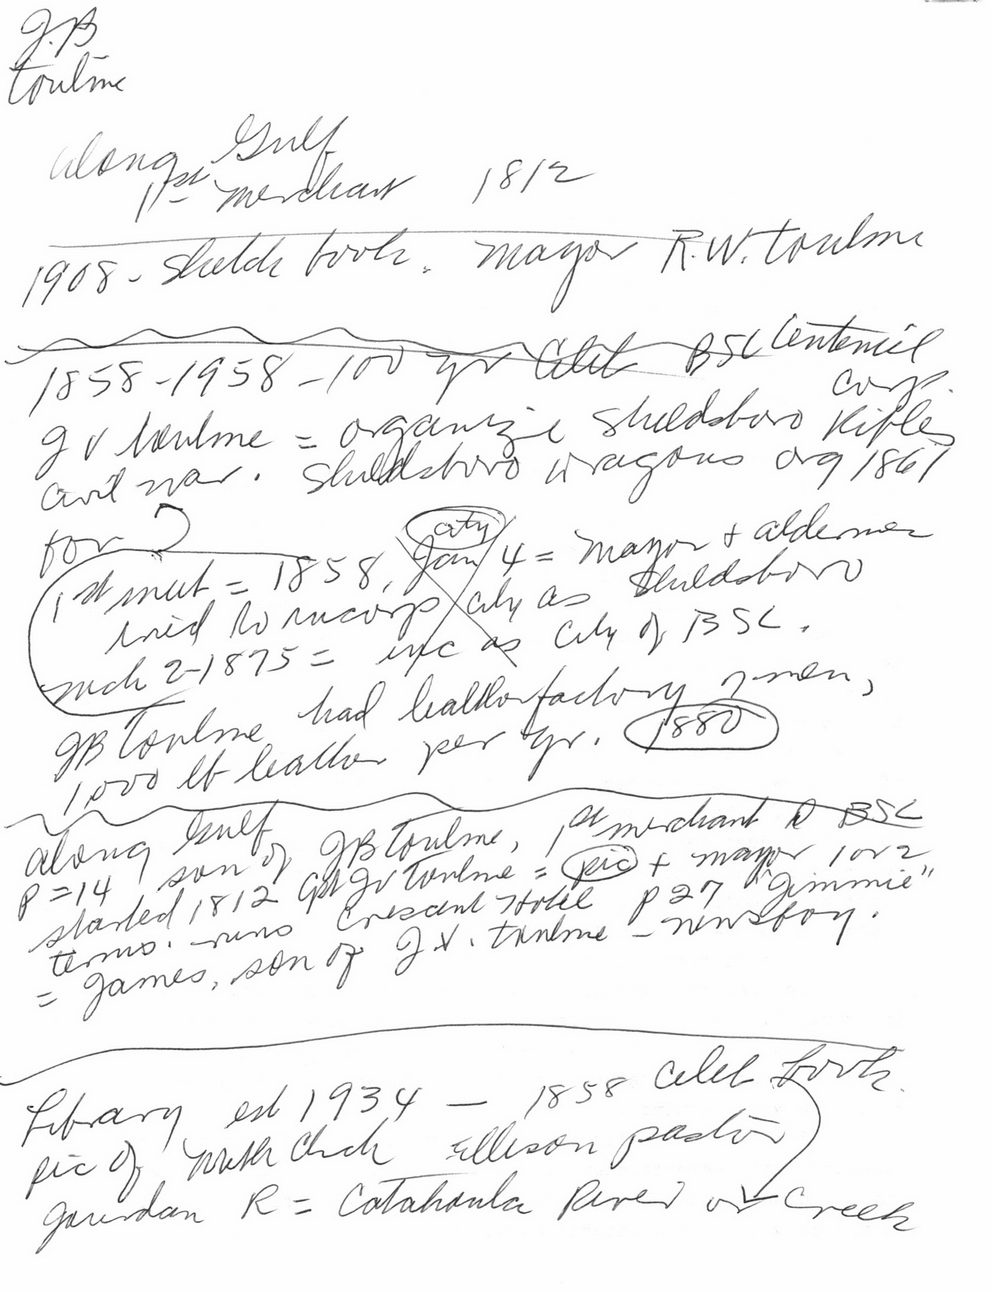 J.B
Toulme
Along Gulf
1st merchant 1812
1908 - Sketch book. Mayor R.W. Toulme
1858-1958 - 100 yr Celeb BSL Centenial
Corp.
J V Toulme = organize Shieldsboro Rifles
Civil War. Shieldsboro Dragons org 1861
for
city
1st meet = 1858, Jan 4 = Mayor + aldermen
tried to incorp city as Shieldsboro
Mch 2-1875 = inc as City of BSL.
JB Toulme had leather factory 2 men,
1,000 lb leather per yr. 1880
Along Gulf
P=14 son of JB Toulme, 1st merchant BSL
started 1812 Capt JV Toulme = pic + mayor 1 or 2
terms. runs Crescent Hotel P 27 "Jimmie"
= James, son of J.V. Toulme - newsboy.
Library est 1934 - 1858 Celeb book.
pic of Meth Chch Ellison pastor
Jourdan R = Catahoula River or Creek